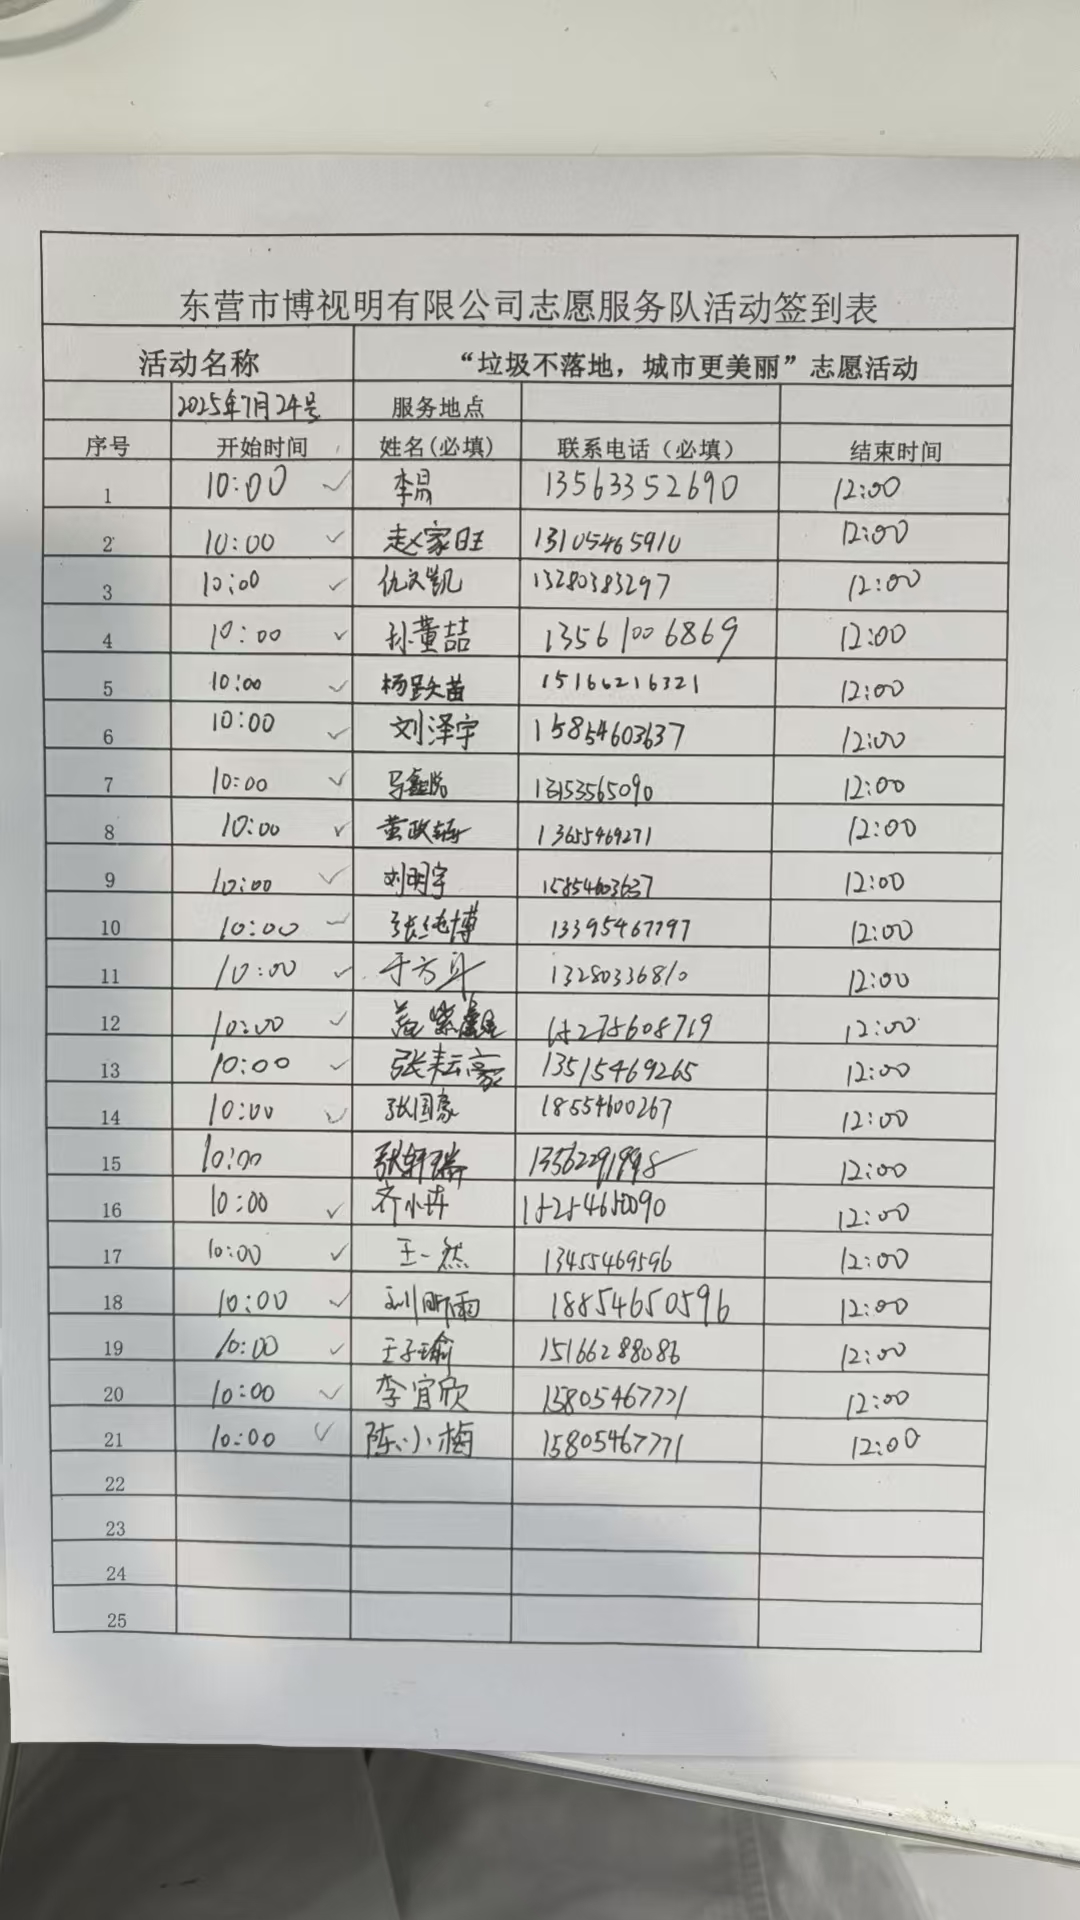 东营市博视明有限公司志愿服务队活动签到表
活动名称 “垃圾不落地，城市更美丽”志愿活动
2025年7月24号 服务地点
序号 开始时间 姓名(必填) 联系电话（必填） 结束时间
1 10:00 ✓ 李易 13563352690 12:00
2 10:00 ✓ 赵家旺 13105465910 12:00
3 10:00 ✓ 仇文凯 13280383297 12:00
4 10:00 ✓ 孙董喆 13561006869 12:00
5 10:00 ✓ 杨 苗 15166216321 12:00
6 10:00 ✓ 刘泽宇 15854603637 12:00
7 10:00 ✓ 马鑫悦 13153565090 12:00
8 10:00 ✓ 黄政 13655469271 12:00
9 10:00 ✓ 刘明宇 15854603637 12:00
10 10:00 ✓ 张纯博 13395467797 12:00
11 10:00 ✓ 于方舟 13280336810 12:00
12 10:00 ✓ 紫 15275608719 12:00
13 10:00 ✓ 张耘豪 13515469265 12:00
14 10:00 ✓ 张国豪 18554600267 12:00
15 10:00 张轩瑞 13562291998 12:00
16 10:00 ✓ 齐小卉 15254650090 12:00
17 10:00 ✓ 王一然 13455469596 12:00
18 10:00 ✓ 刘昕雨 18854650596 12:00
19 10:00 ✓ 王子瑜 15166288086 12:00
20 10:00 ✓ 李宜欣 15805467771 12:00
21 10:00 ✓ 陈小梅 15805467771 12:00
22
23
24
25